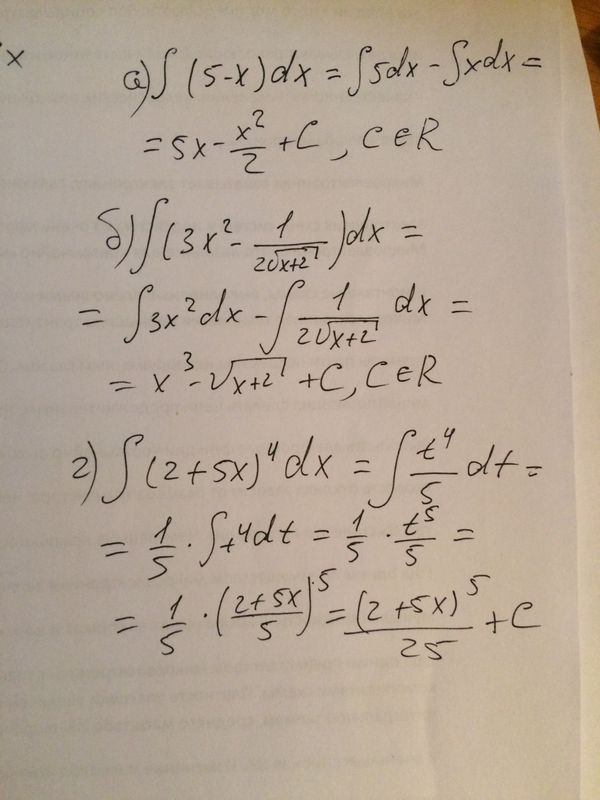 x
а) ∫ (5-x) dx = ∫5dx - ∫xdx =
= 5x - x²/2 + C, C ∈ R
б) ∫(3x² - 1/(2√(x+2)))dx =
= ∫3x²dx - ∫ 1/(2√(x+2)) dx =
= x³ - √(x+2) + C, C ∈ R
г) ∫(2+5x)⁴ dx = ∫ t⁴/5 dt =
= 1/5 · ∫t⁴dt = 1/5 · t⁵/5 =
= 1/5 · ((2+5x)/5)⁵ = (2+5x)⁵/25 + C